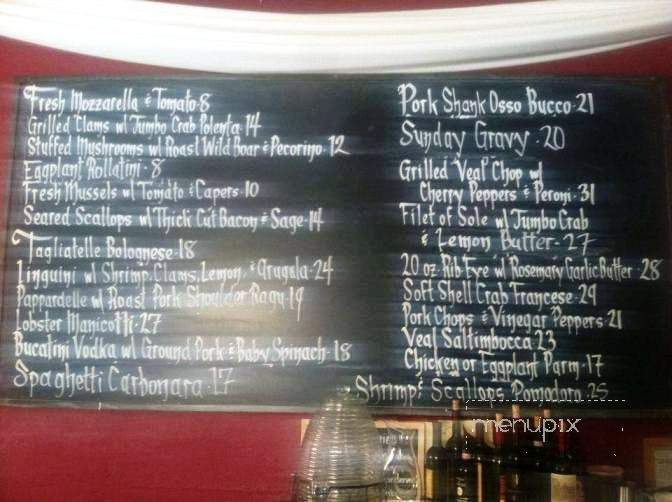 Fresh Mozzarella & Tomato·8
Grilled Clams w/ Jumbo Crab Polenta·14
Stuffed Mushrooms w/ Roast Wild Boar & Pecorino·12
Eggplant Rollatini·8
Fresh Mussels w/ Tomato & Capers·10
Seared Scallops w/ Thick Cut Bacon & Sage·14
Tagliatelle Bolognese·18
Linguini w/ Shrimp, Clams, Lemon & Arugula·24
Pappardelle w/ Roast Pork Shoulder Ragu·19
Lobster Manicotti·27
Bucatini Vodka w/ Ground Pork & Baby Spinach·18
Spaghetti Carbonara·17
Pork Shank Osso Bucco·21
Sunday Gravy·20
Grilled Veal Chop w/
Cherry Peppers & Peroni·31
Filet of Sole w/ Jumbo Crab
& Lemon Butter·27
20 oz. Rib Eye w/ Rosemary Garlic Butter·28
Soft Shell Crab Francese·29
Pork Chops & Vinegar Peppers·21
Veal Saltimbocca·23
Chicken or Eggplant Parm·17
Shrimp & Scallops Pomodoro·25
menupix